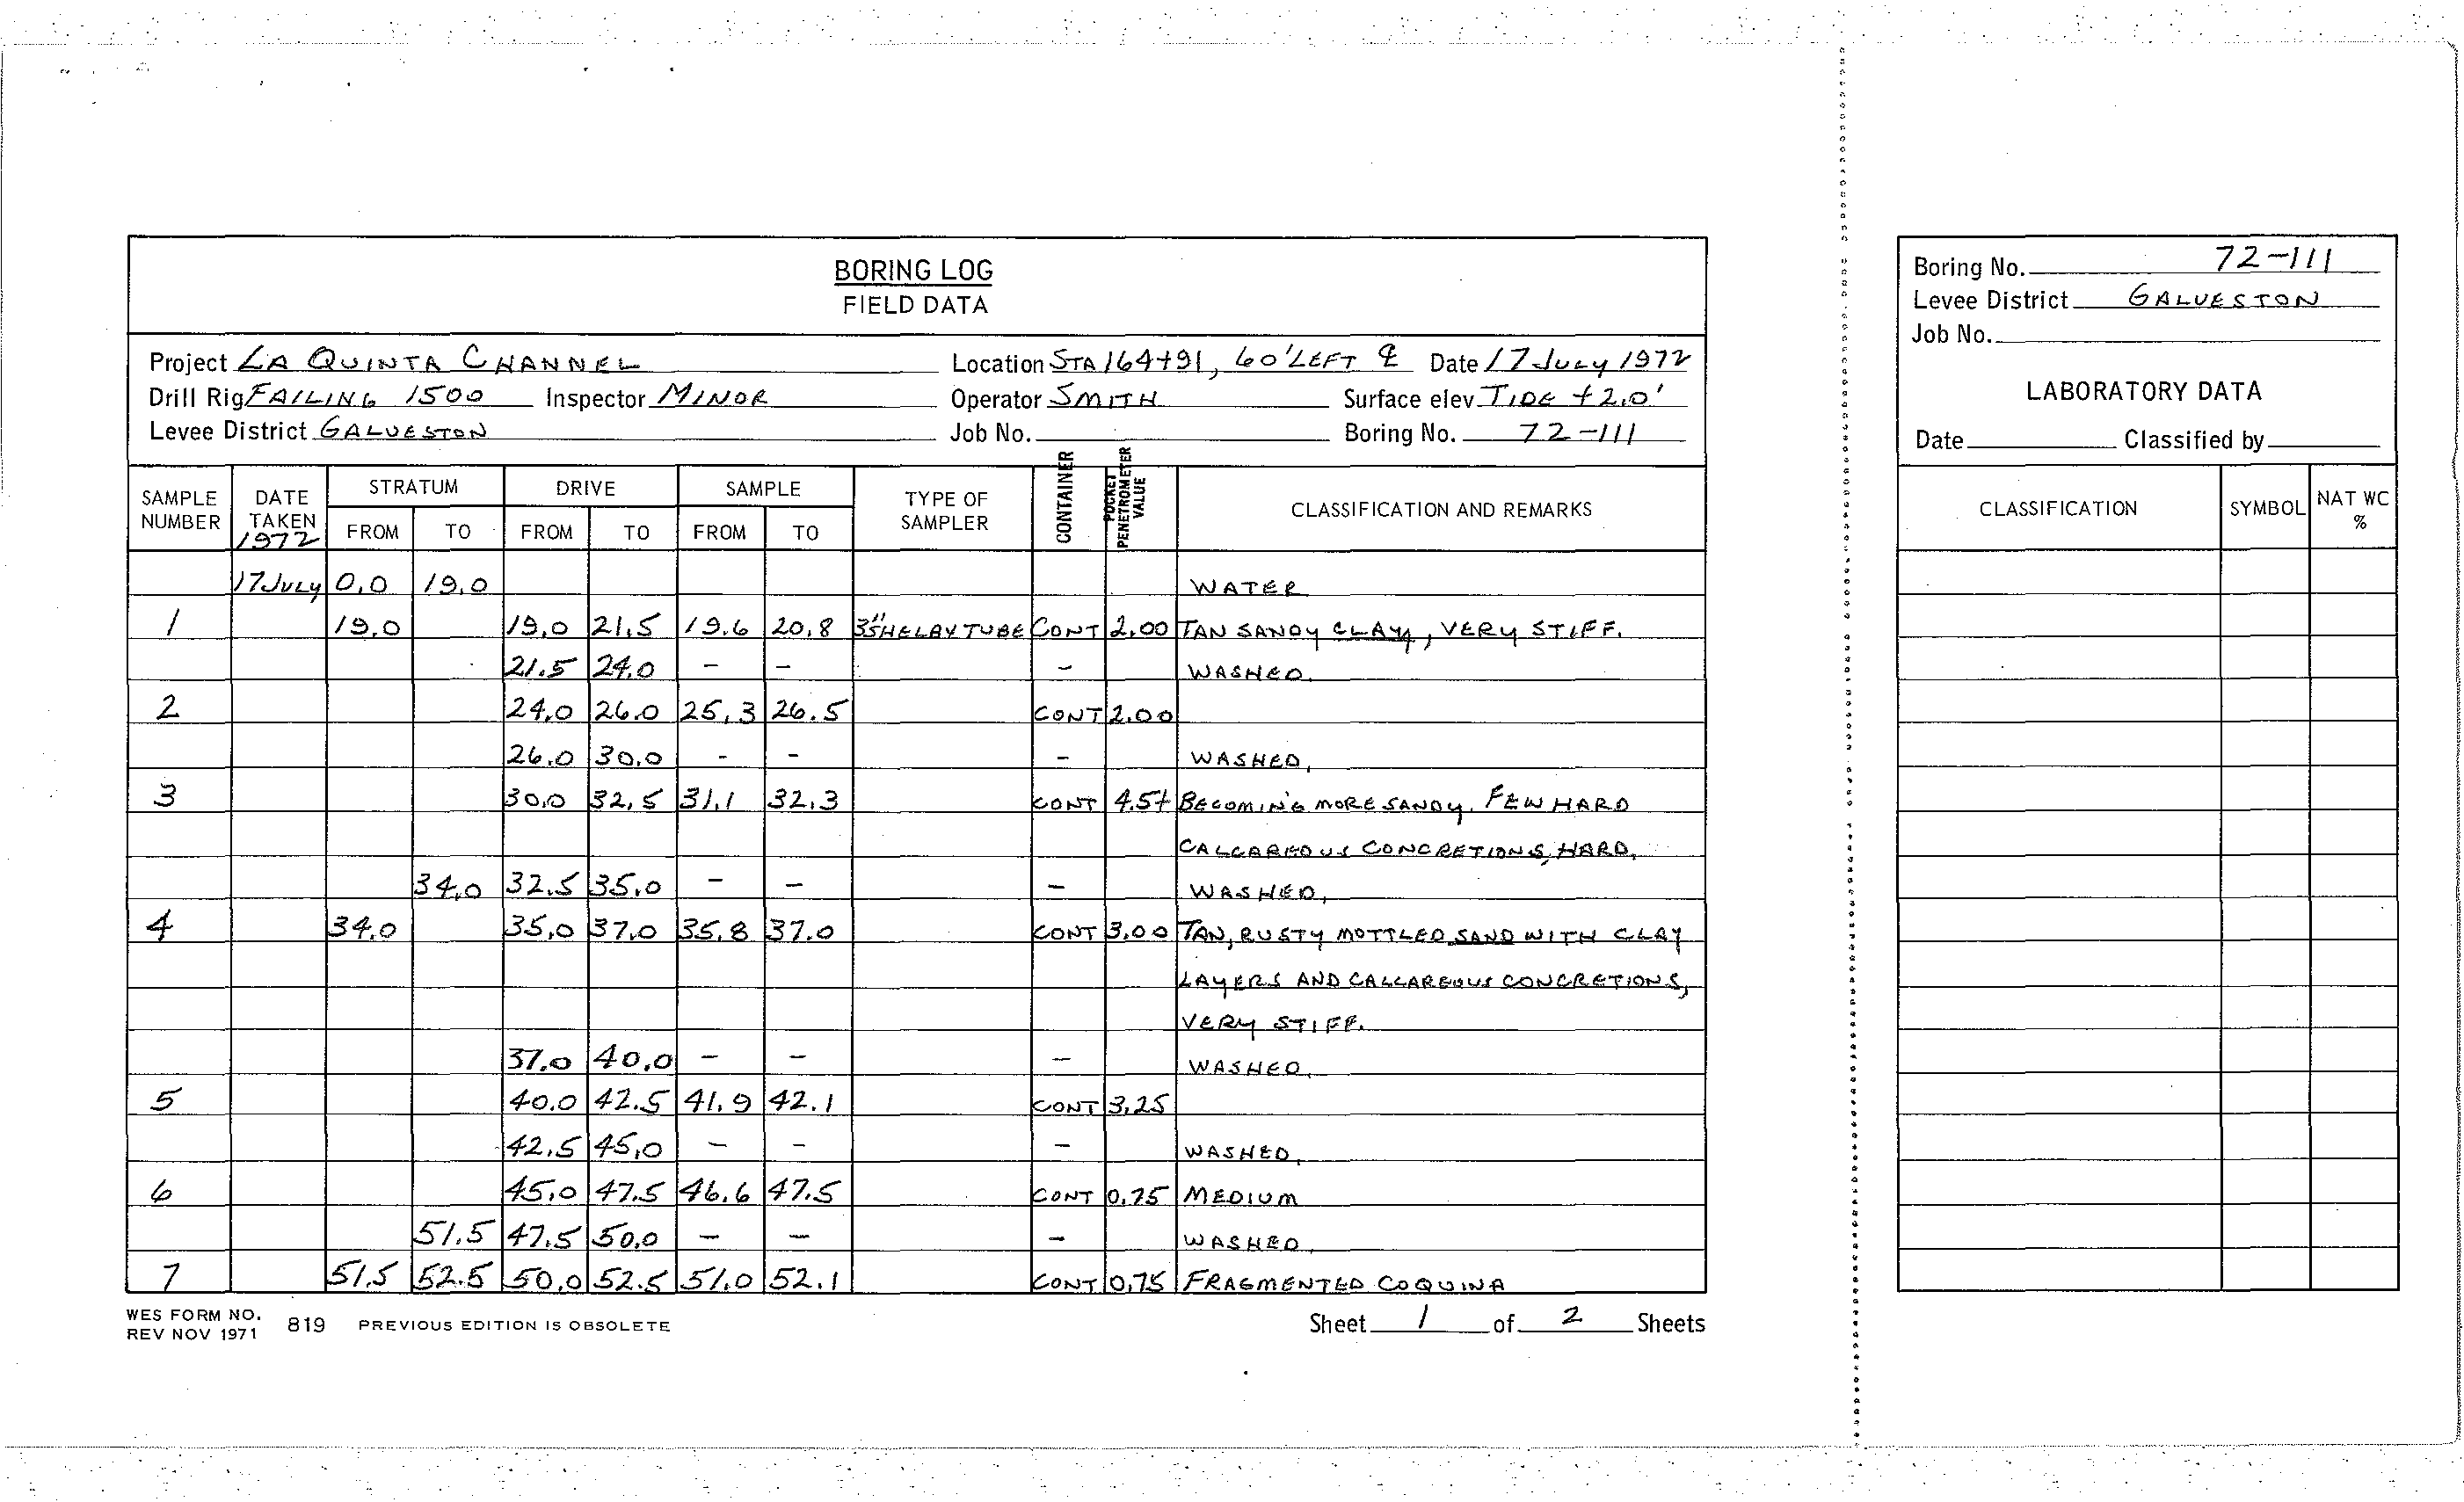 BORING LOG
FIELD DATA
Project LA QUINTA CHANNEL Location STA 164+91, 60' LEFT ℄ Date 17 JULY 1972
Drill Rig FAILING 1500 Inspector MINOR Operator SMITH Surface elev TIDE +2.0'
Levee District GALVESTON Job No. Boring No. 72-111
SAMPLE NUMBER DATE TAKEN 1972 STRATUM FROM TO DRIVE FROM TO SAMPLE FROM TO TYPE OF SAMPLER CONTAINER POCKET PENETROMETER VALUE CLASSIFICATION AND REMARKS
17 JULY 0.0 19.0 WATER
1 19.0 19.0 21.5 19.6 20.8 3" SHELBY TUBE CONT 2.00 TAN SANDY CLAY, VERY STIFF.
21.5 24.0 - - - WASHED.
2 24.0 26.0 25.3 26.5 CONT 2.00
26.0 30.0 - - - WASHED.
3 30.0 32.5 31.1 32.3 CONT 4.5+ BECOMING MORE SANDY. FEW HARD
CALCAREOUS CONCRETIONS, HARD.
34.0 32.5 35.0 - - - WASHED.
4 34.0 35.0 37.0 35.8 37.0 CONT 3.00 TAN, RUSTY MOTTLED SAND WITH CLAY
LAYERS AND CALCAREOUS CONCRETIONS,
VERY STIFF.
37.0 40.0 - - - WASHED.
5 40.0 42.5 41.9 42.1 CONT 3.25
42.5 45.0 - - - WASHED.
6 45.0 47.5 46.6 47.5 CONT 0.75 MEDIUM
51.5 47.5 50.0 - - - WASHED.
7 51.5 52.5 50.0 52.5 51.0 52.1 CONT 0.75 FRAGMENTED COQUINA
WES FORM NO.
REV NOV 1971 819 PREVIOUS EDITION IS OBSOLETE Sheet 1 of 2 Sheets
Boring No. 72-111
Levee District GALVESTON
Job No.
LABORATORY DATA
Date Classified by
CLASSIFICATION SYMBOL NAT WC %